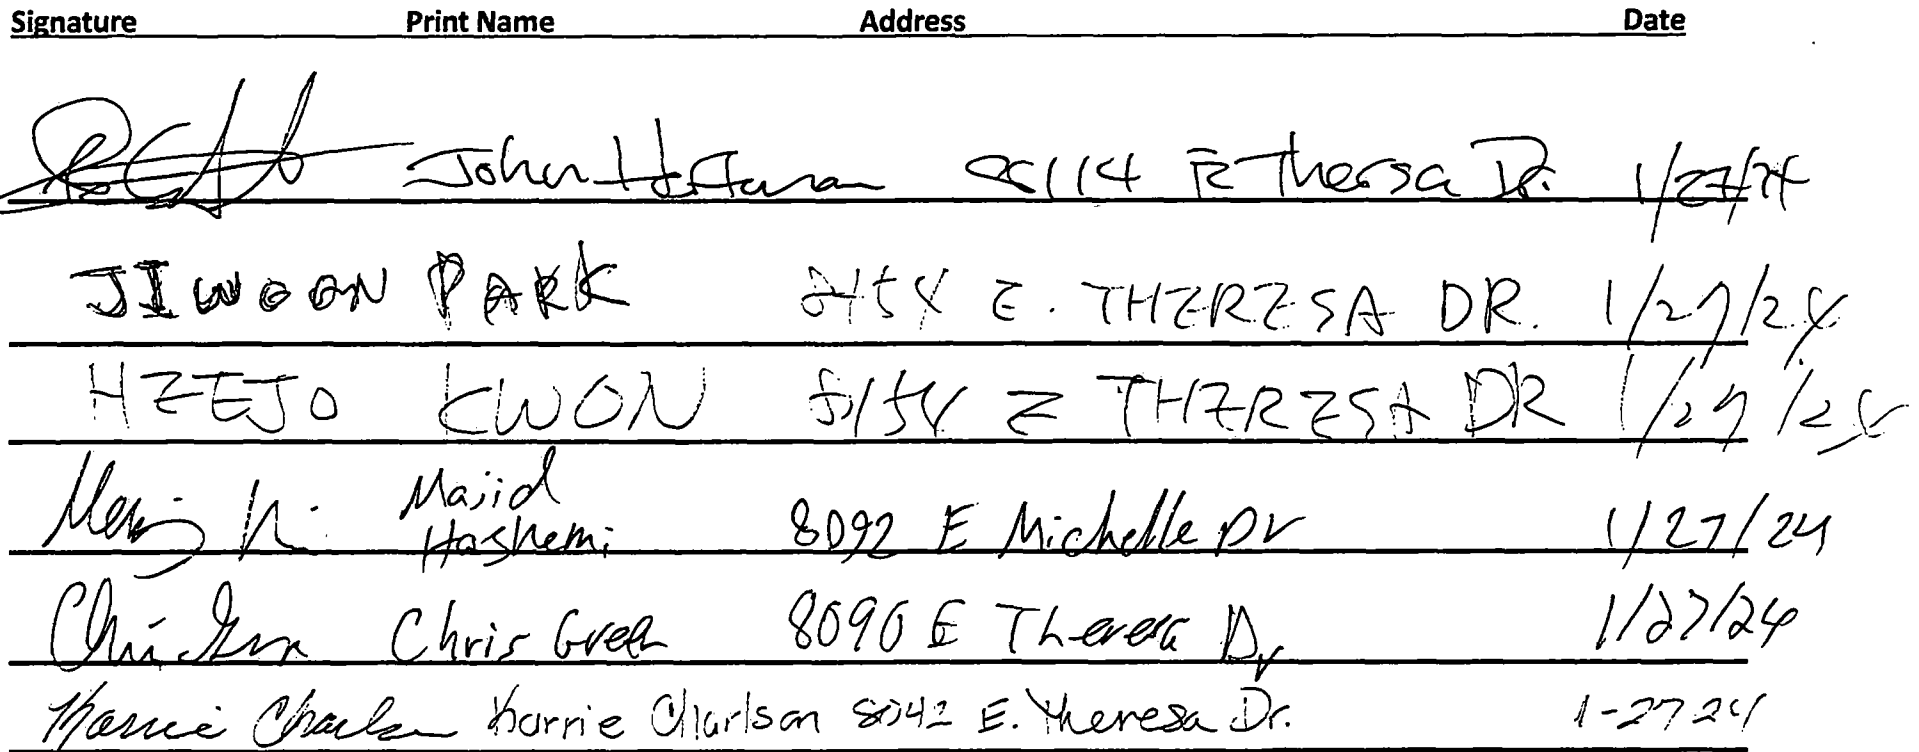 Signature Print Name Address Date
John Hoffman 8114 E Thersa Dr. 1/27/24
JIWOON PARK 8154 E. THERESA DR. 1/27/24
HEEJO KWON 8154 E THERESA DR 1/27/24
Majid
Hashemi 8092 E Michelle Dr 1/27/24
Chris Green Chris Green 8090 E Theresa Dr 1/27/24
Karrie Charlson Karrie Charlson 8042 E. Theresa Dr. 1-27 24